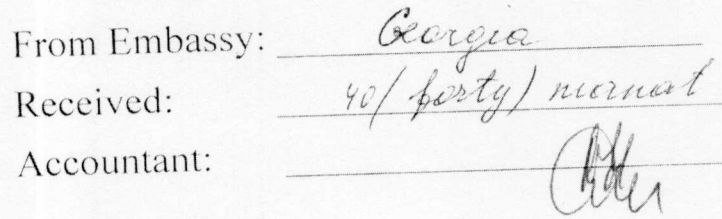 From Embassy: Georgia
Received: 40 (forty) manat
Accountant: